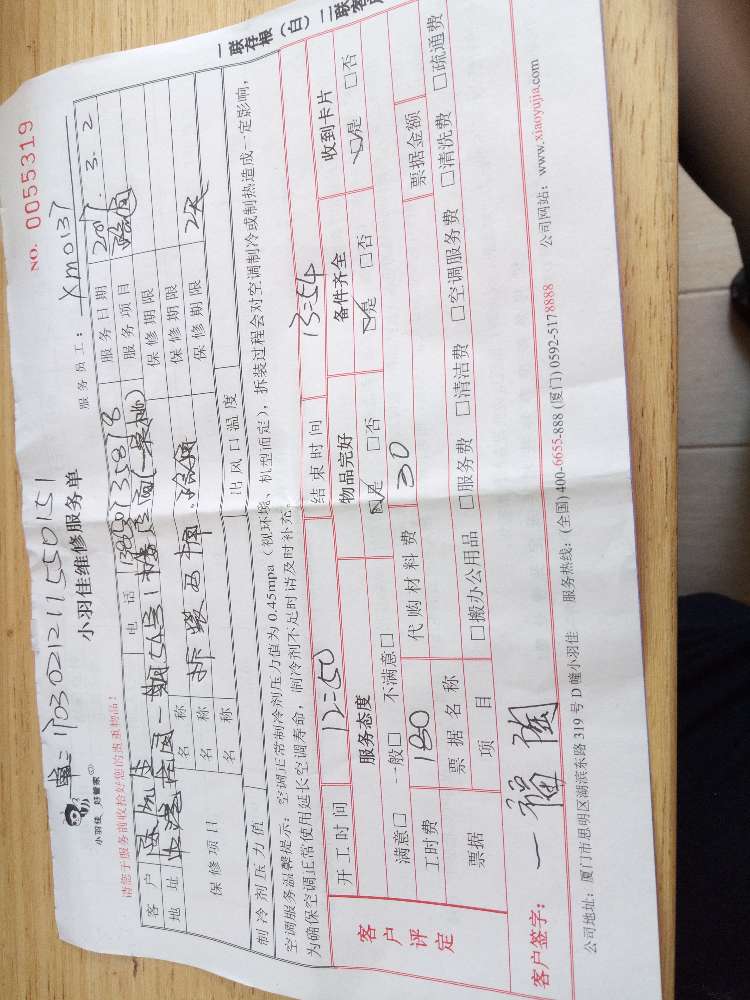 一联存根（白）二联客户
NO. 0055319
单：1703021211550151
小羽佳 好管家
小羽佳维修服务单
服务员工： Xm0137
请您于服务前收拾好您的贵重物品！
客户 电话 服务日期 2017.3.2
地址 服务项目
保修项目 名称 保修期限
名称 拆装马桶 保修期限
名称 保修期限
制冷剂压力值 出风口温度
空调服务温馨提示：空调正常制冷剂压力值为0.45mpa（视环境、机型而定），拆装过程会对空调制冷或制热造成一定影响，
为确保空调正常使用延长空调寿命，制冷剂不足时请及时补充。
客户评定 开工时间 12:50 结束时间 13:54
服务态度 物品完好 备件齐全 收到卡片
满意□ 一般□ 不满意□ □是 □否 □是 □否 □是 □否
工时费 180 代购材料费 30
票据 票据名称 票据金额
项目 □搬办公用品 □服务费 □清洁费 □空调服务费 □清洗费 □疏通费
客户签字：
公司地址：厦门市思明区湖滨东路319号D幢小羽佳 服务热线：(全国)400-6655-888 (厦门)0592-5178888 公司网站：www.xiaoyujia.com